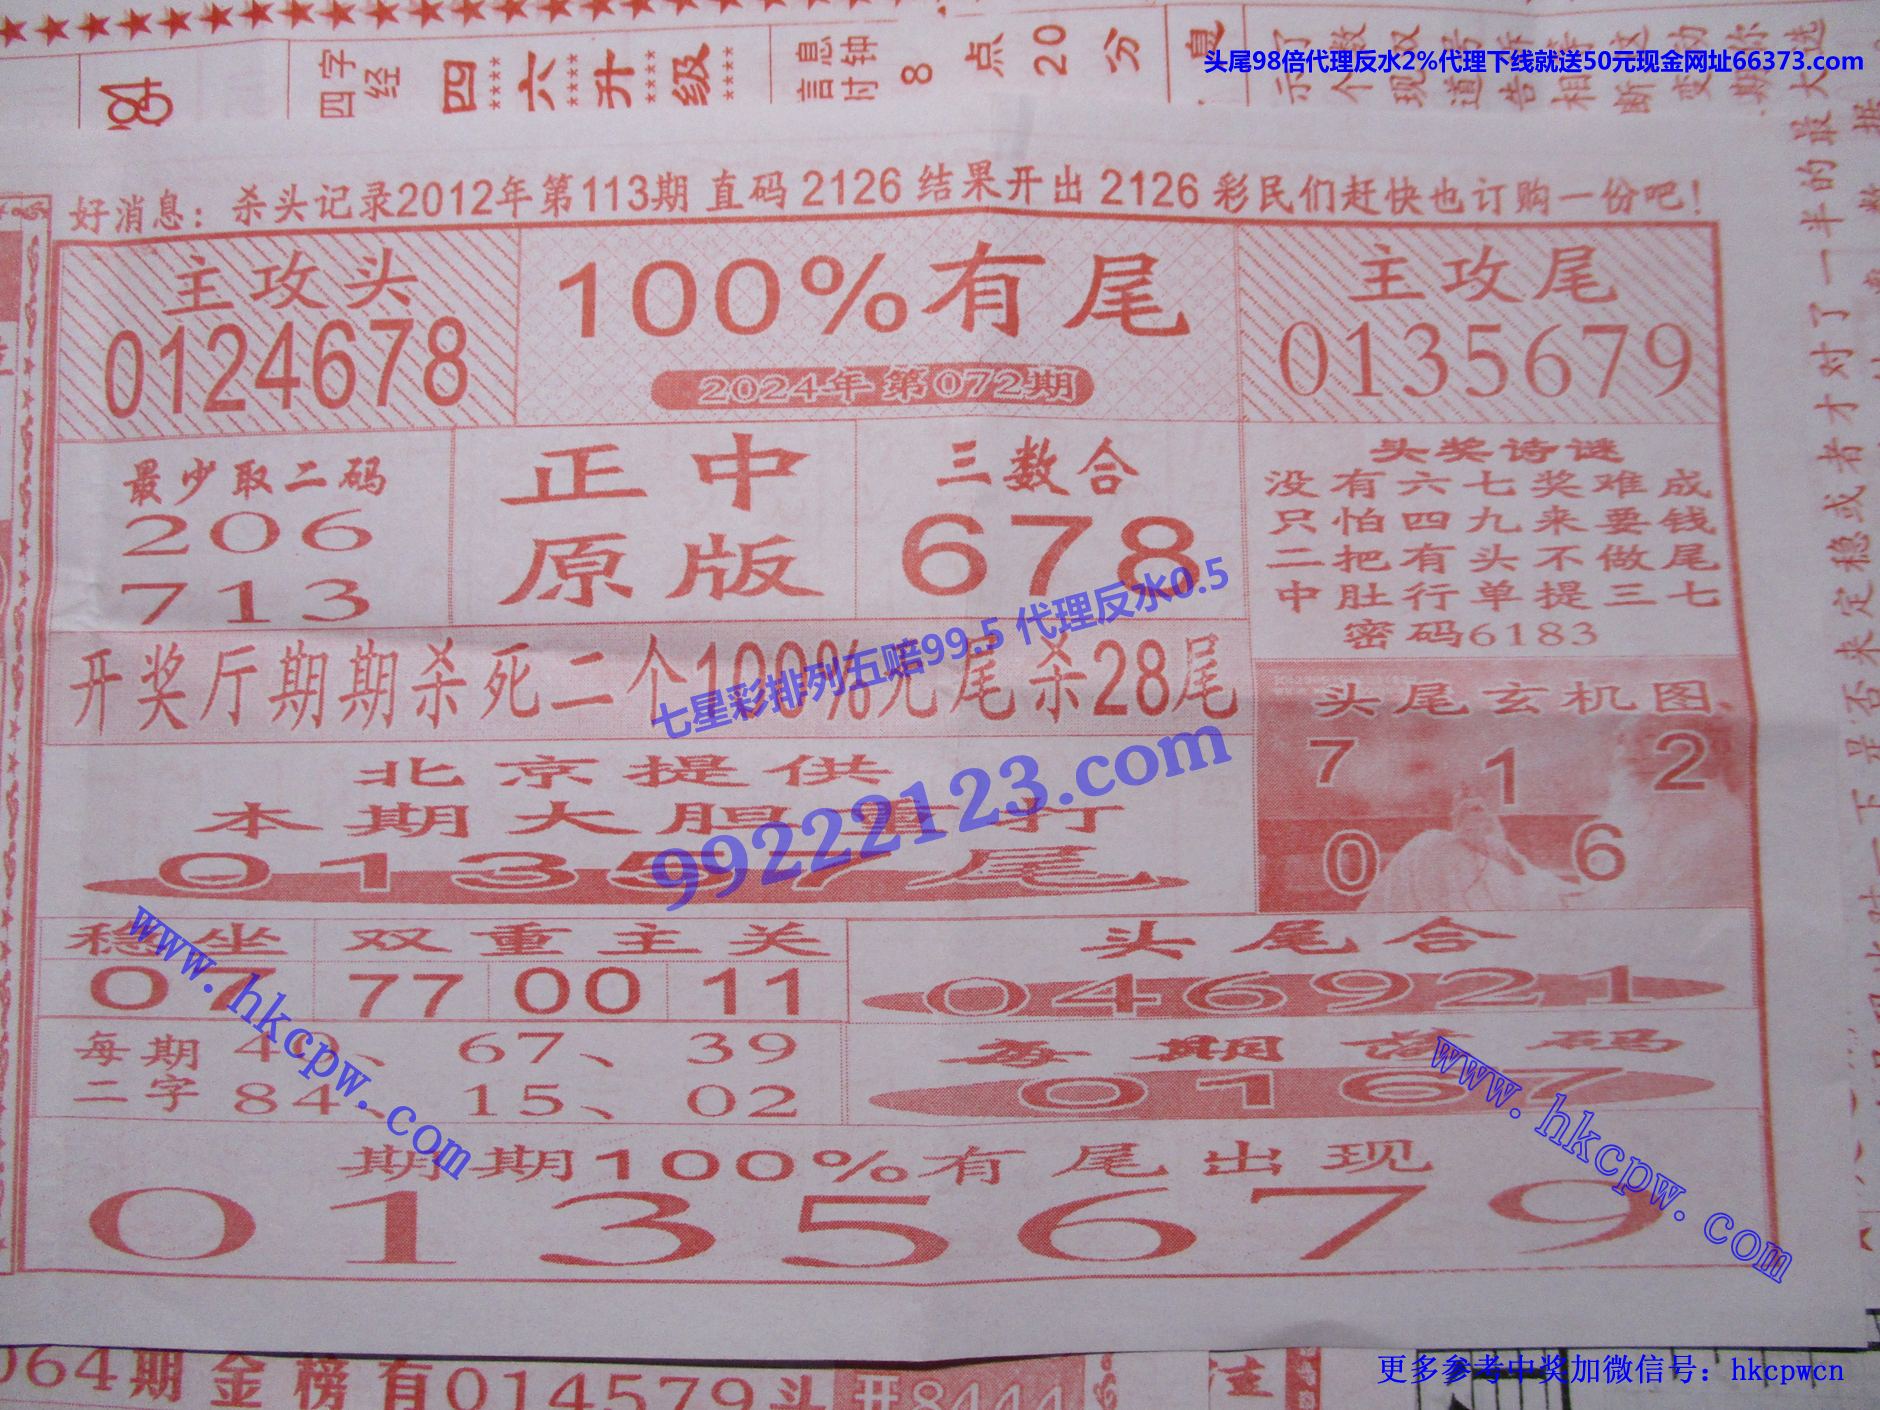 四字
经
四六升级
信息
时钟
8点20分
息
头尾98倍代理反水2%代理下线就送50元现金网址66373.com
好消息：杀头记录2012年第113期 直码 2126 结果开出 2126 彩民们赶快也订购一份吧！
主攻头
0124678
100%有尾
2024年第072期
主攻尾
0135679
最少取二码
206
713
正中
原版
三数合
678
头奖诗谜
没有六七奖难成
只怕四九来要钱
二把有头不做尾
中肚行单提三七
密码6183
开奖厅期期杀死二个100%无尾杀28尾
七星彩排列五赔99.5 代理反水0.5
99222123.com
头尾玄机图
7 1 2
0 6
北京提供
本期大胆重打
01357尾
稳坐
07
双重主关
77 00 11
头尾合
046921
每期
二字
40、67、39
84、15、02
每期落码
0167
www.hkcpw.com
www.hkcpw.com
期期100%有尾出现
0135679
064期金榜有014579头开8444
注
更多参考中奖加微信号：hkcpwcn